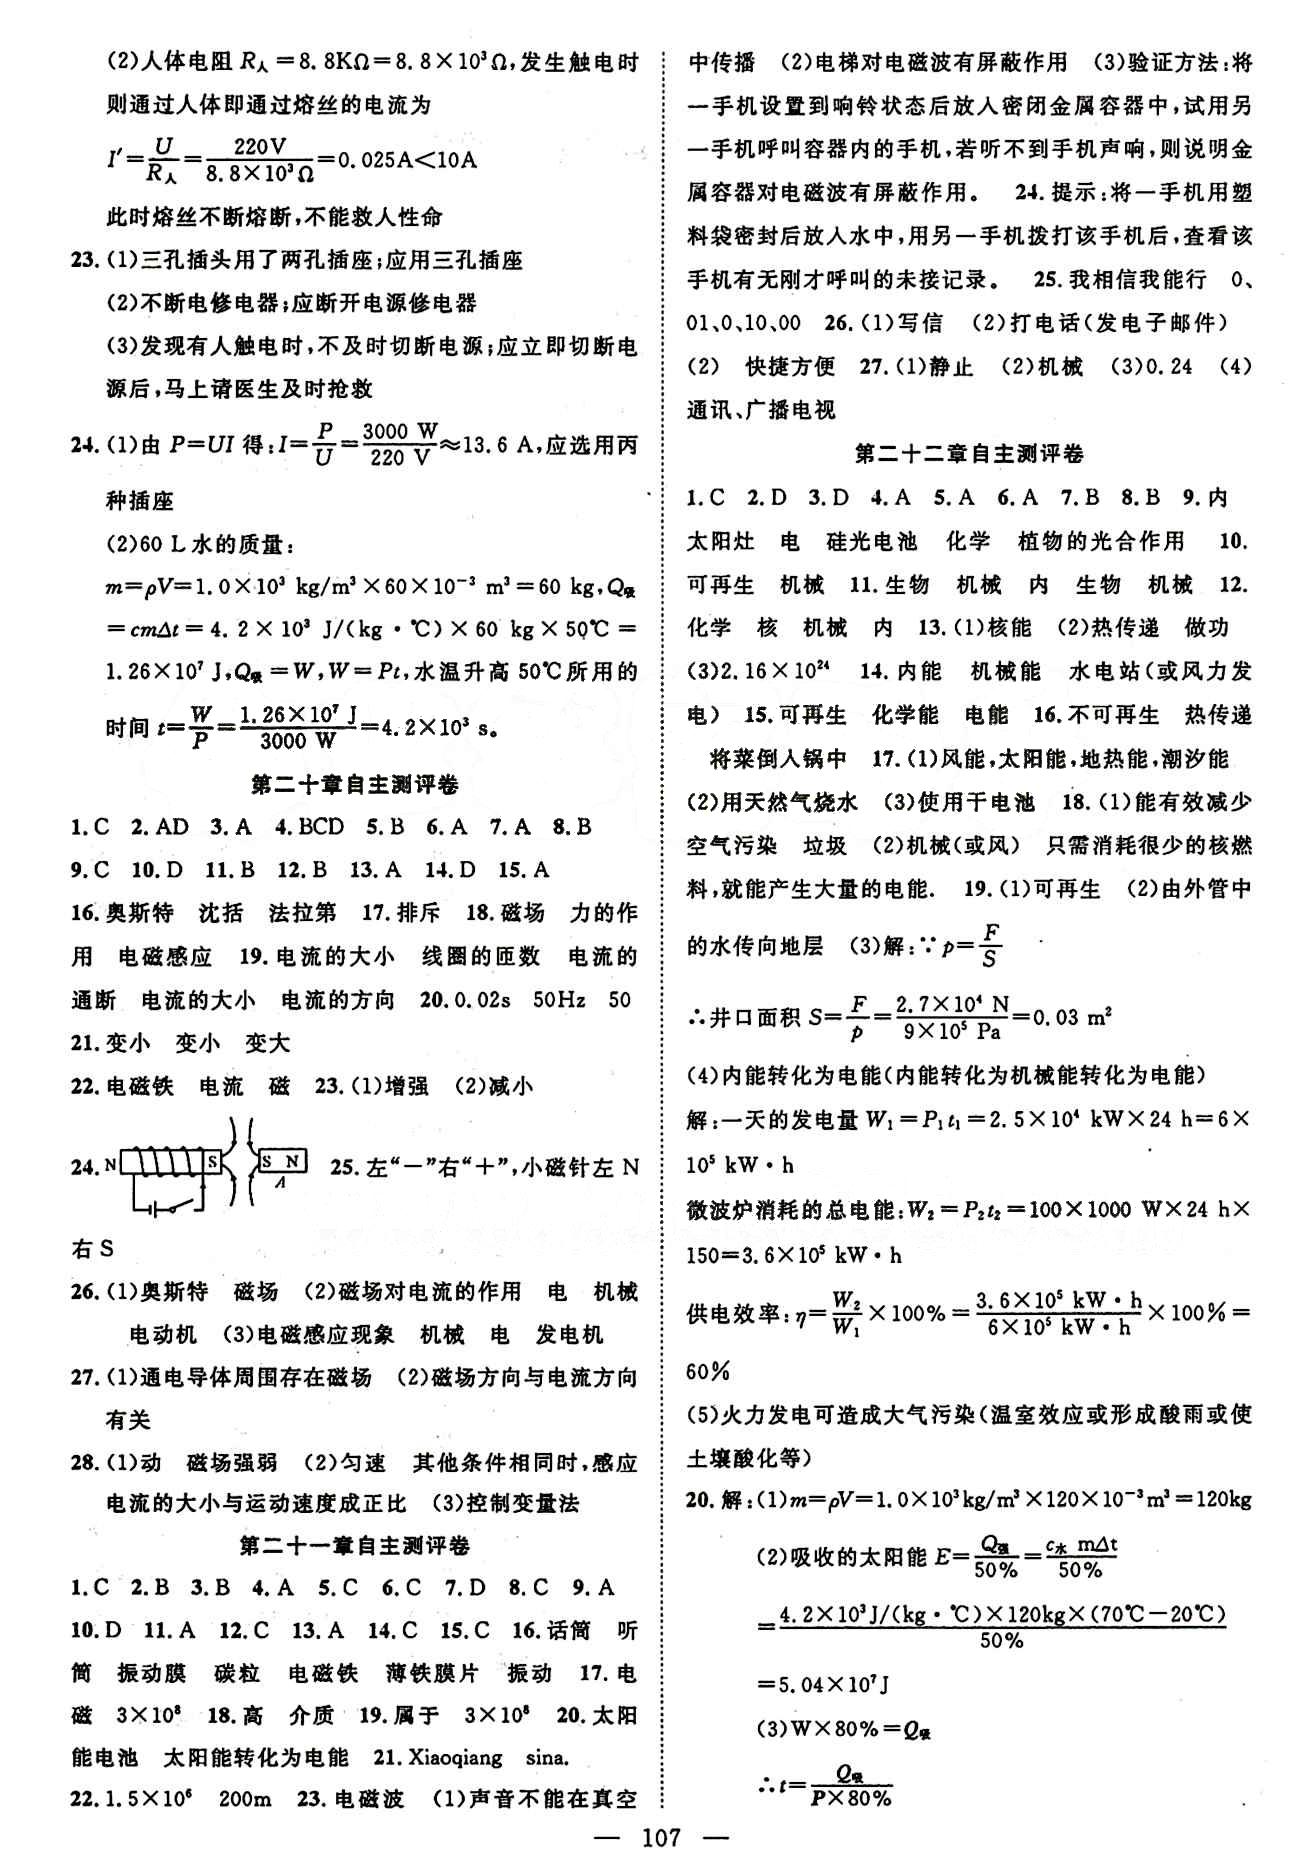 (2)人体电阻 R人=8.8KΩ=8.8×10³Ω,发生触电时
则通过人体即通过熔丝的电流为
I′=U/R人=220V/8.8×10³Ω=0.025A<10A
此时熔丝不断熔断,不能救人性命
23.(1)三孔插头用了两孔插座;应用三孔插座
(2)不断电修电器;应断开电源修电器
(3)发现有人触电时,不及时切断电源;应立即切断电
源后,马上请医生及时抢救
24.(1)由 P=UI 得:I=P/U=3000 W/220 V≈13.6 A,应选用丙
种插座
(2)60 L 水的质量:
m=ρV=1.0×10³ kg/m³×60×10⁻³ m³=60 kg,Q吸
=cmΔt=4.2×10³ J/(kg·℃)×60 kg×50℃=
1.26×10⁷ J,Q吸=W,W=Pt,水温升高 50℃所用的
时间 t=W/P=1.26×10⁷ J/3000 W=4.2×10³ s。
第二十章自主测评卷
1.C 2.AD 3.A 4.BCD 5.B 6.A 7.A 8.B
9.C 10.D 11.B 12.B 13.A 14.D 15.A
16.奥斯特 沈括 法拉第 17.排斥 18.磁场 力的作
用 电磁感应 19.电流的大小 线圈的匝数 电流的
通断 电流的大小 电流的方向 20.0.02s 50Hz 50
21.变小 变小 变大
22.电磁铁 电流 磁 23.(1)增强 (2)减小
24. N S S N A 25.左“－”右“＋”,小磁针左 N
右 S
26.(1)奥斯特 磁场 (2)磁场对电流的作用 电 机械
电动机 (3)电磁感应现象 机械 电 发电机
27.(1)通电导体周围存在磁场 (2)磁场方向与电流方向
有关
28.(1)动 磁场强弱 (2)匀速 其他条件相同时,感应
电流的大小与运动速度成正比 (3)控制变量法
第二十一章自主测评卷
1.C 2.B 3.B 4.A 5.C 6.C 7.D 8.C 9.A
10.D 11.A 12.C 13.A 14.C 15.C 16.话筒 听
筒 振动膜 碳粒 电磁铁 薄铁膜片 振动 17.电
磁 3×10⁸ 18.高 介质 19.属于 3×10⁸ 20.太阳
能电池 太阳能转化为电能 21.Xiaoqiang sina.
22.1.5×10⁶ 200m 23.电磁波 (1)声音不能在真空
中传播 (2)电梯对电磁波有屏蔽作用 (3)验证方法:将
一手机设置到响铃状态后放人密闭金属容器中,试用另
一手机呼叫容器内的手机,若听不到手机声响,则说明金
属容器对电磁波有屏蔽作用。 24.提示:将一手机用塑
料袋密封后放人水中,用另一手机拨打该手机后,查看该
手机有无刚才呼叫的未接记录。 25.我相信我能行 0、
01、0、10、00 26.(1)写信 (2)打电话(发电子邮件)
(2) 快捷方便 27.(1)静止 (2)机械 (3)0.24 (4)
通讯、广播电视
第二十二章自主测评卷
1.C 2.D 3.D 4.A 5.A 6.A 7.B 8.B 9.内
太阳灶 电 硅光电池 化学 植物的光合作用 10.
可再生 机械 11.生物 机械 内 生物 机械 12.
化学 核 机械 内 13.(1)核能 (2)热传递 做功
(3)2.16×10²⁴ 14.内能 机械能 水电站(或风力发
电) 15.可再生 化学能 电能 16.不可再生 热传递
将菜倒人锅中 17.(1)风能,太阳能,地热能,潮汐能
(2)用天然气烧水 (3)使用干电池 18.(1)能有效减少
空气污染 垃圾 (2)机械(或风) 只需消耗很少的核燃
料,就能产生大量的电能. 19.(1)可再生 (2)由外管中
的水传向地层 (3)解:∵p=F/S
∴井口面积 S=F/p=2.7×10⁴ N/9×10⁵ Pa=0.03 m²
(4)内能转化为电能(内能转化为机械能转化为电能)
解:一天的发电量 W₁=P₁t₁=2.5×10⁴ kW×24 h=6×
10⁵ kW·h
微波炉消耗的总电能:W₂=P₂t₂=100×1000 W×24 h×
150=3.6×10⁵ kW·h
供电效率:η=W₂/W₁×100%=3.6×10⁵ kW·h/6×10⁵ kW·h×100%=
60%
(5)火力发电可造成大气污染(温室效应或形成酸雨或使
土壤酸化等)
20.解:(1)m=ρV=1.0×10³kg/m³×120×10⁻³m³=120kg
(2)吸收的太阳能 E=Q吸/50%=c水 mΔt/50%
=4.2×10³J/(kg·℃)×120kg×(70℃－20℃)/50%
=5.04×10⁷J
(3)W×80%=Q吸
∴t=Q吸/P×80%
— 107 —